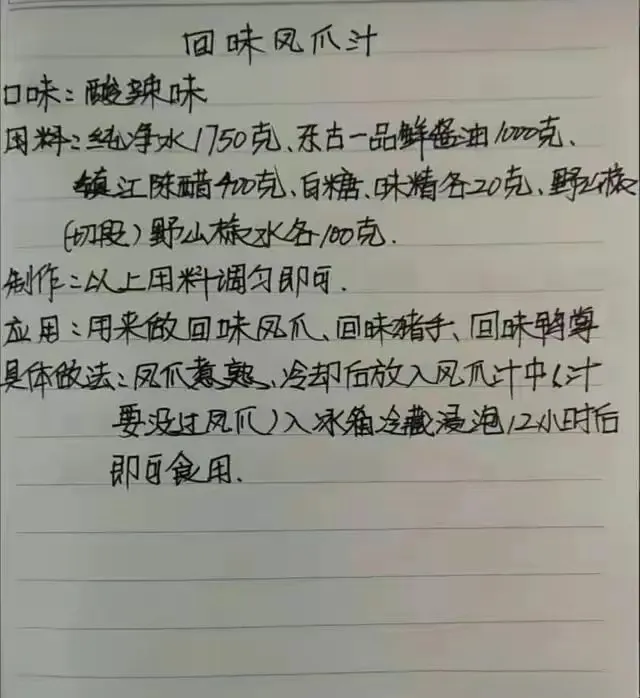 回味凤爪汁
口味:酸辣味
用料:纯净水1750克、东古一品鲜酱油1000克、
镇江陈醋400克、白糖、味精各20克、野山椒
(切段)野山椒水各100克.
制作:以上用料调匀即可.
应用:用来做回味凤爪、回味猪手、回味鸭胗
具体做法:凤爪煮熟、冷却后放入凤爪汁中(汁
要没过凤爪)入冰箱冷藏浸泡12小时后
即可食用.